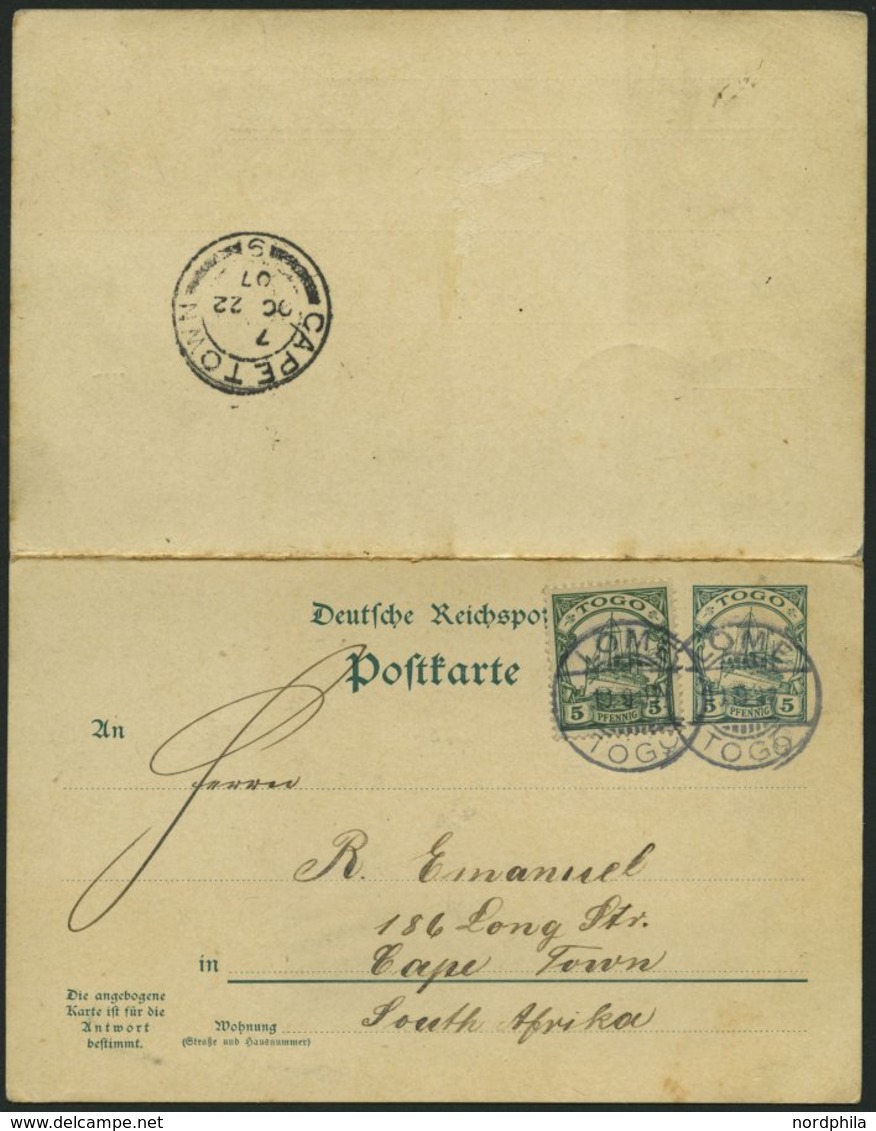 CAPE TOWN
7
OC 22
07
9
Deutsche Reichspo
Postkarte
TOGO
5 PFENNIG 5
TOGO
5 PFENNIG 5
LOME
TOGO
LOME
TOGO
An
Herrn
R. Emanuel
186 Long Str.
in Cape Town
South Afrika
Die angebogene
Karte ist für die
Antwort
bestimmt.
Wohnung
(Straße und Hausnummer)
delcampe.net
nordphila